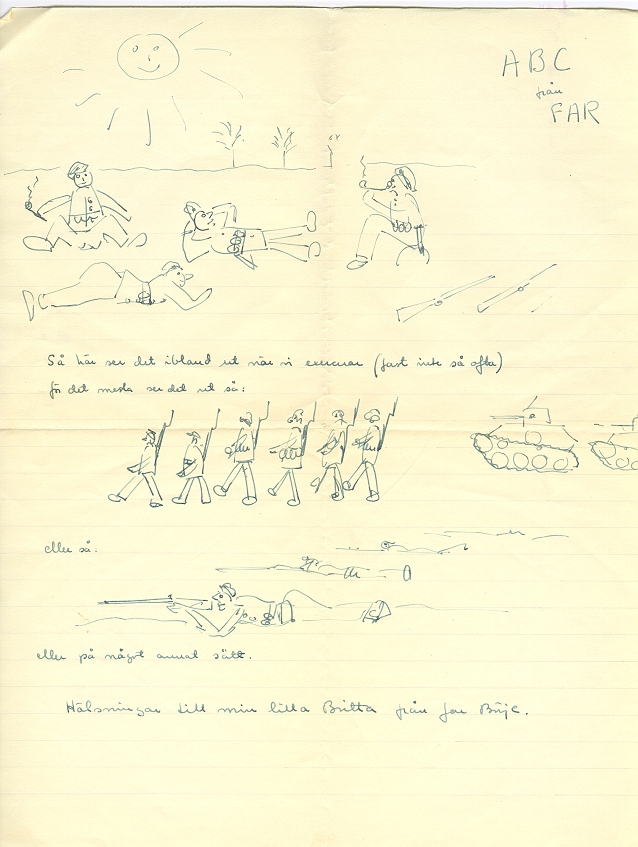 ABC
från
FAR
Så här ser det ibland ut när vi exercerar (fast inte så ofta)
för det mesta ser det ut så:
eller så:
eller på något annat sätt.
Hälsningar till min lilla Britta från far